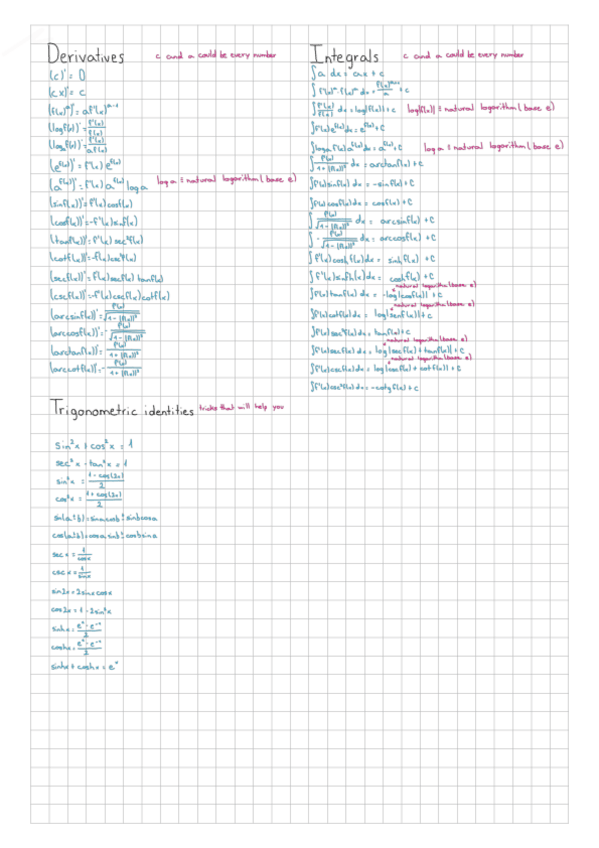 Derivatives c and a could be every number
(c)' = 0
(cx)' = c
(f(x)^a)' = a f'(x)^(a-1)
(log f(x))' = f'(x)/f(x)
(log_a f(x))' = f'(x)/a f(x)
(e^f(x))' = f'(x) e^f(x)
(a^f(x))' = f'(x) a^f(x) log a log a = natural logarithm (base e)
(sinf(x))' = f'(x)cosf(x)
(cosf(x))' = -f'(x)sinf(x)
(tanf(x))' = f'(x) sec²f(x)
(cotf(x))' = -f(x)csc²f(x)
(secf(x))' = f'(x)secf(x) tanf(x)
(cscf(x))' = -f'(x)cscf(x)cotf(x)
(arcsinf(x))' = f'(x)/√(1-[f(x)]²)
(arccosf(x))' = -f'(x)/√(1-[f(x)]²)
(arctanf(x))' = f'(x)/1+[f(x)]²
(arccotf(x))' = -f'(x)/1+[f(x)]²
Integrals c and a could be every number
∫a dx = ax + c
∫f'(x) f(x)^a dx = f(x)^(a+1)/a + c
∫f'(x)/f(x) dx = log|f(x)| + c log|f(x)| = natural logarithm (base e)
∫f'(x)e^f(x) dx = e^f(x) + C
∫log a f'(x) a^f(x) dx = a^f(x) + C log a = natural logarithm (base e)
∫f'(x)/1+[f(x)]² dx = arctanf(x) + C
∫f'(x)sinf(x)dx = -sinf(x) + C
∫f'(x)cosf(x)dx = cosf(x) + C
∫f'(x)/√(1-[f(x)]²) dx = arcsinf(x) + C
∫-f'(x)/√(1-[f(x)]²) dx = arccosf(x) + C
∫f'(x)coshf(x)dx = sinhf(x) + C
∫f'(x)sinhf(x)dx = coshf(x) + C
natural logarithm (base e)
∫f'(x)tanf(x)dx = -log|cosf(x)| + c
natural logarithm (base e)
∫f'(x)cotf(x)dx = log|senf(x)| + c
∫f'(x)sec²f(x)dx = tanf(x) + c
natural logarithm (base e)
∫f'(x)secf(x)dx = log|secf(x) + tanf(x)| + c
natural logarithm (base e)
∫f'(x)cscf(x)dx = log|cosf(x) + cotf(x)| + c
∫f'(x)csc²f(x)dx = -cotgf(x) + c
Trigonometric identities tricks that will help you
sin²x + cos²x = 1
sec²x - tan²x = 1
sin²x = 1-cos(2x)/2
cos²x = 1+cos(2x)/2
sin(a±b) = sinacosb ± sinbcosa
cos(a±b) = cosa sinb ± cosbsina
sec x = 1/cosx
csc x = 1/sinx
sin2x = 2sinxcosx
cos2x = 1-2sin²x
sinhx = e^x - e^-x/2
coshx = e^x - e^-x/2
sinhx + coshx = e^x